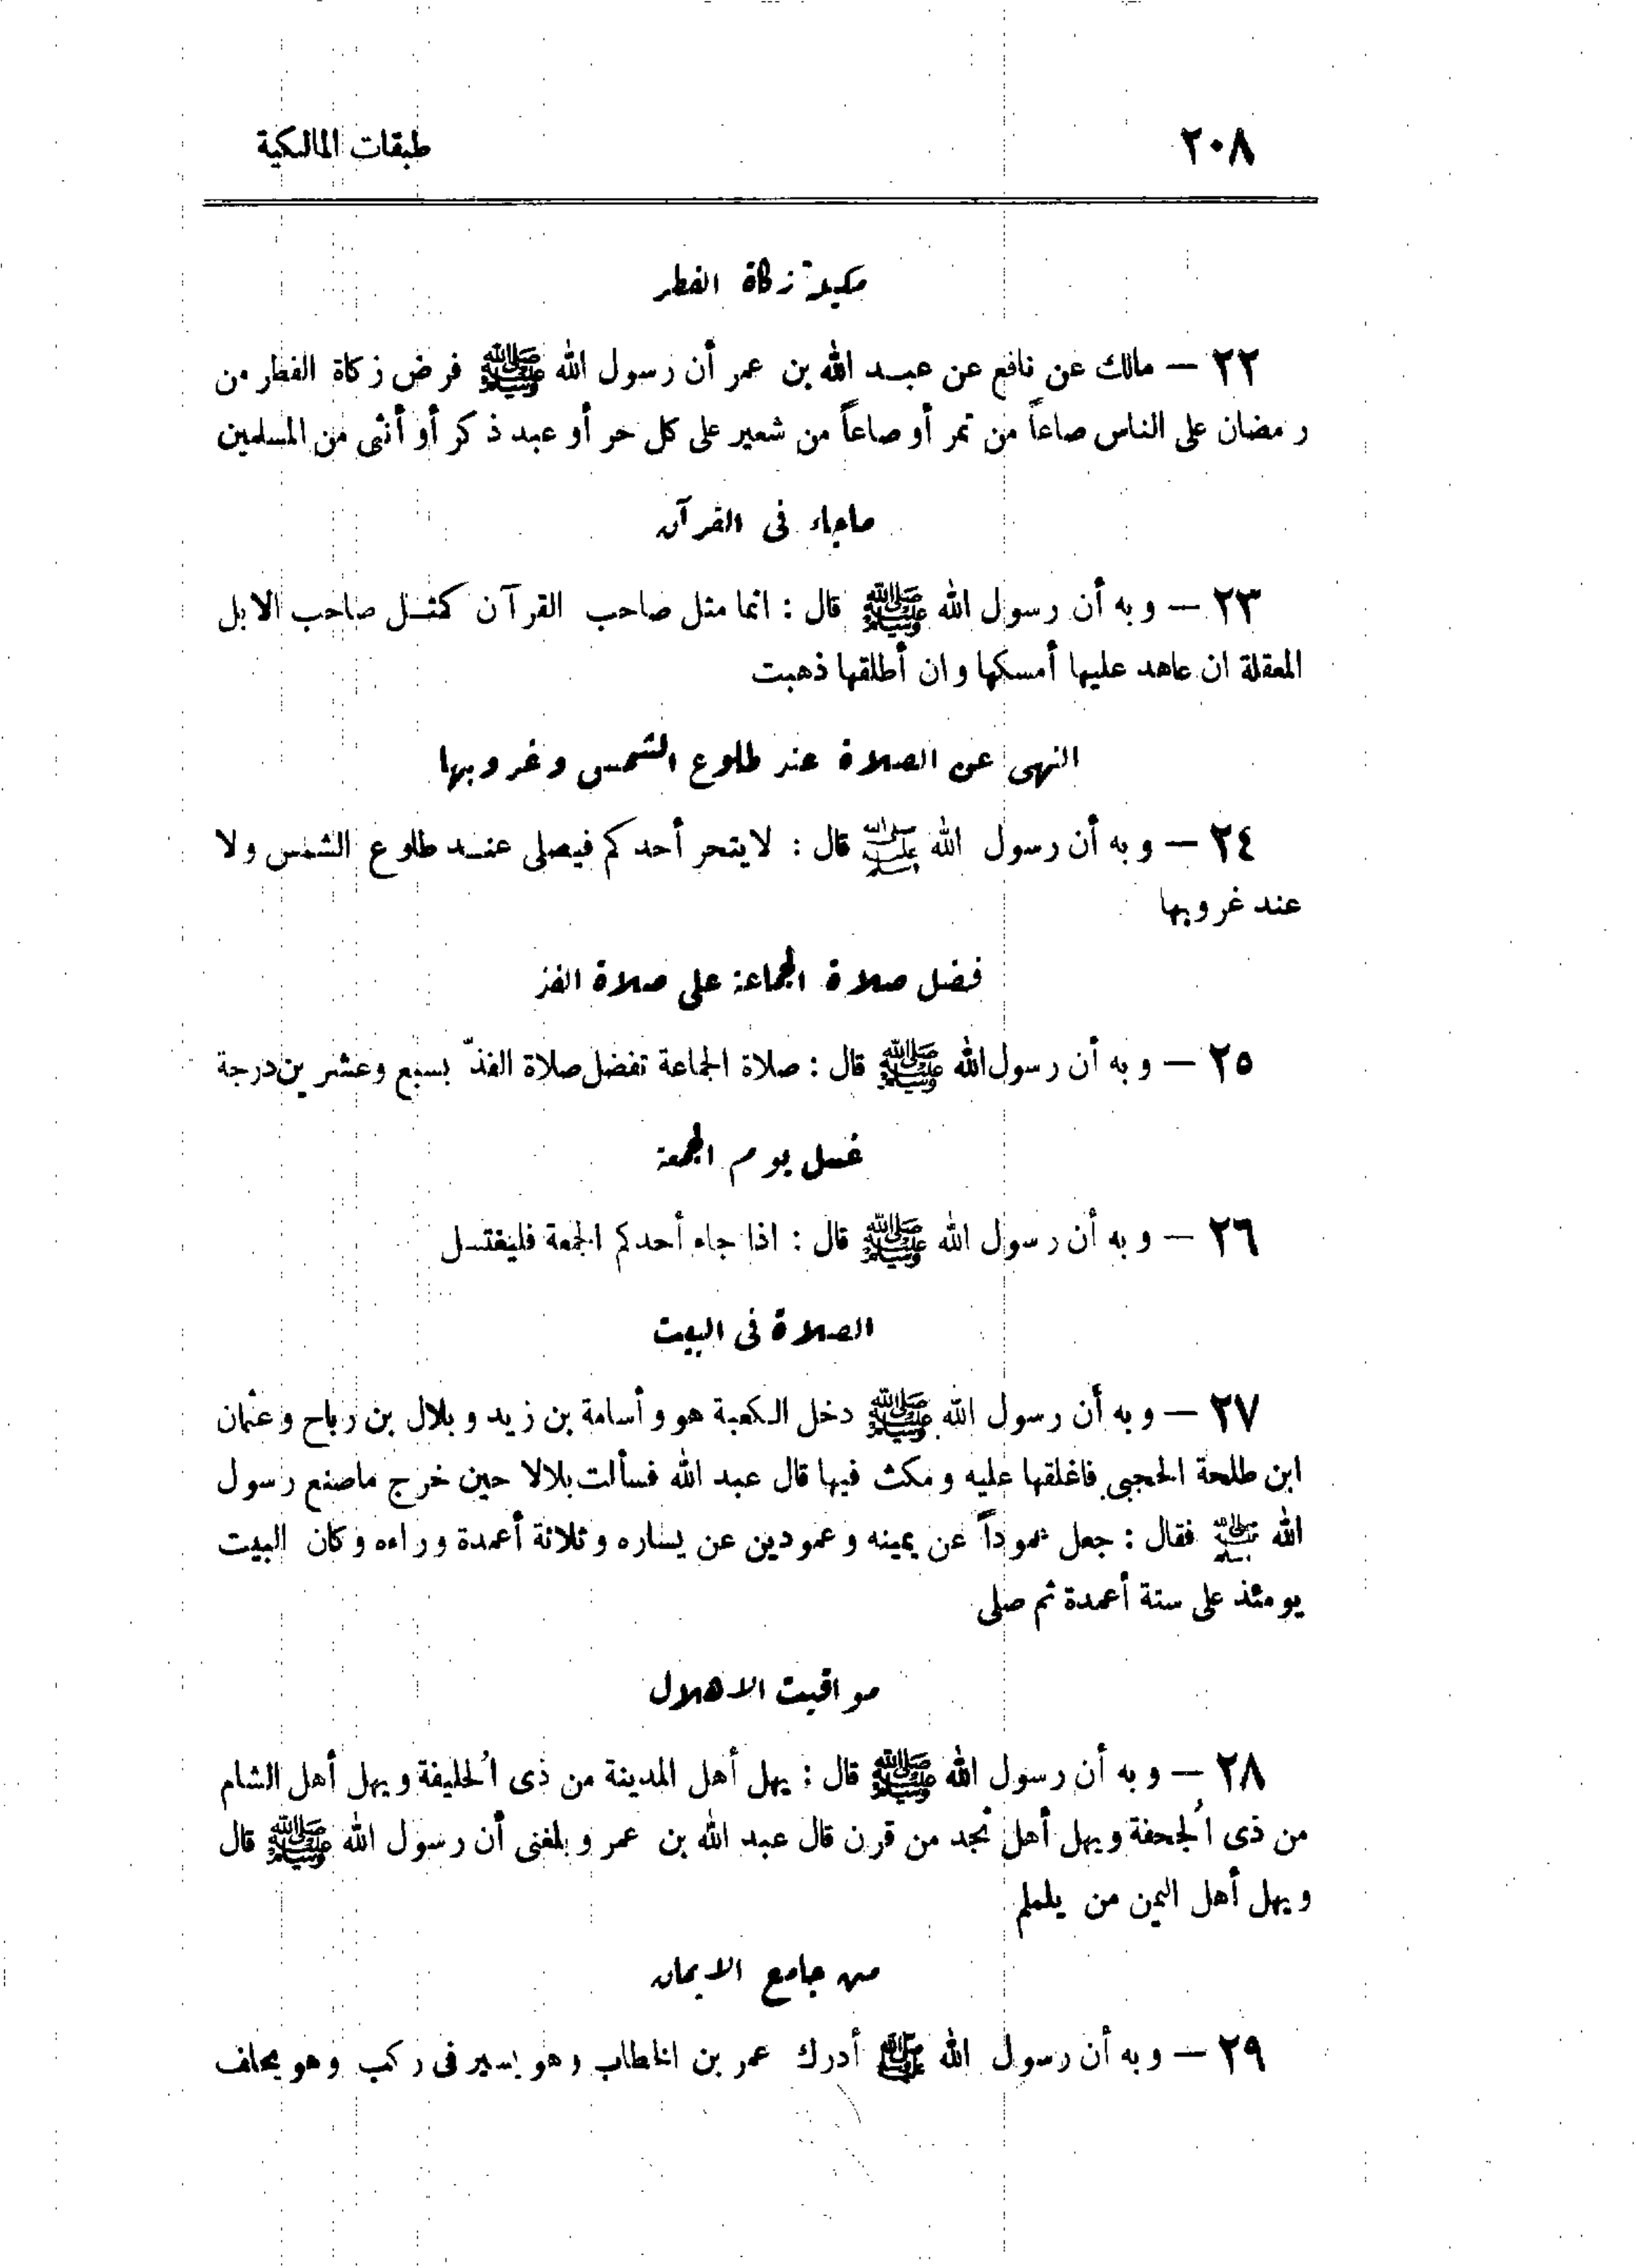 ٢٠٨ طبقات المالكية
مكيلة زكاة الفطر
٢٢ — مالك عن نافع عن عبد الله بن عمر أن رسول الله ﷺ فرض زكاة الفطر من
رمضان على الناس صاعاً من تمر أو صاعاً من شعير على كل حر أو عبد ذكر أو أنثى من المسلمين
ماجاء فى القرآن
٢٣ — وبه أن رسول الله ﷺ قال : انما مثل صاحب القرآن كمثل صاحب الابل
المعقلة ان عاهد عليها أمسكها وان أطلقها ذهبت
النهى عن الصلاة عند طلوع الشمس وغروبها
٢٤ — وبه أن رسول الله ﷺ قال : لايتحر أحدكم فيصلى عند طلوع الشمس ولا
عند غروبها
فضل صلاة الجماعة على صلاة الفذ
٢٥ — وبه أن رسول الله ﷺ قال : صلاة الجماعة تفضل صلاة الفذّ بسبع وعشرين درجة
غسل يوم الجمعة
٢٦ — وبه أن رسول الله ﷺ قال : اذا جاء أحدكم الجمعة فليغتسل
الصلاة فى البيت
٢٧ — وبه أن رسول الله ﷺ دخل الكعبة هو وأسامة بن زيد وبلال بن رباح وعثمان
ابن طلحة الحجبى فاغلقها عليه ومكث فيها قال عبد الله فسألت بلالا حين خرج ماصنع رسول
الله ﷺ فقال : جعل عموداً عن يمينه وعمودين عن يساره وثلاثة أعمدة وراءه وكان البيت
يومئذ على ستة أعمدة ثم صلى
مواقيت الاهلال
٢٨ — وبه أن رسول الله ﷺ قال : يهل أهل المدينة من ذى الُحليفة ويهل أهل الشام
من ذى الُجحفة ويهل أهل نجد من قرن قال عبد الله بن عمر وبلغنى أن رسول الله ﷺ قال
ويهل أهل اليمن من يلملم
من جامع الايمان
٢٩ — وبه أن رسول الله ﷺ أدرك عمر بن الخطاب وهو يسير فى ركب وهو يحلف